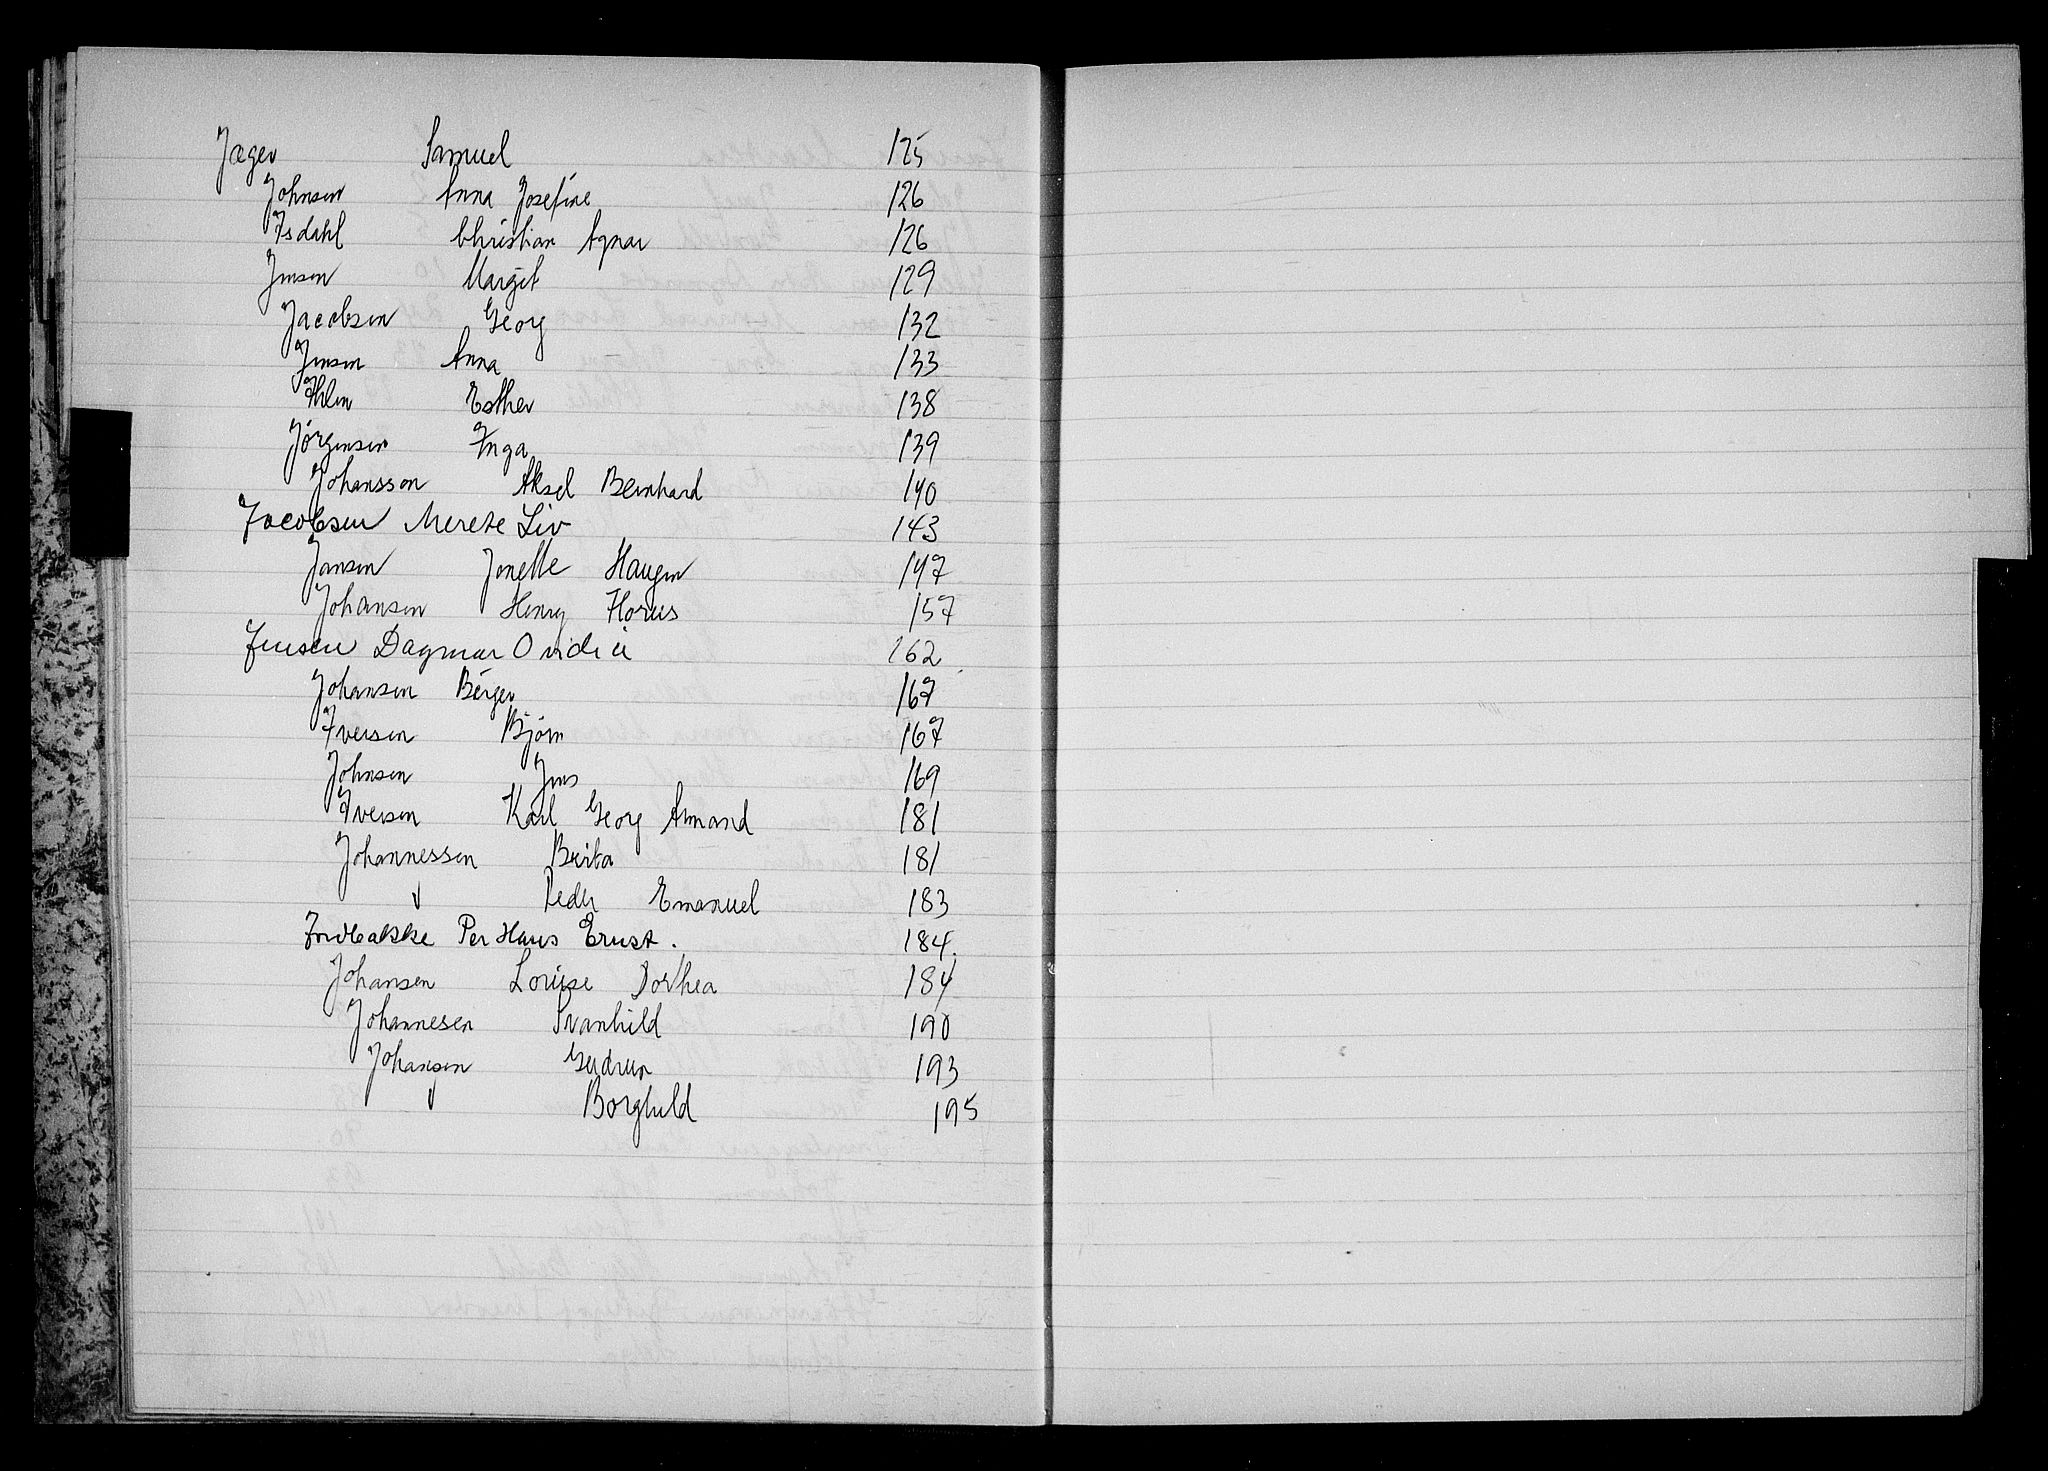 Jæger Samuel 125
Johnsen Anna Josefine 126
Isdahl Christian Agnar 126
Jensen Margit 129
Jacobsen Georg 132
Jensen Anna 133
Ihlen Esther 138
Jørgensen Inga 139
Johansson Aksel Bernhard 140
Jacobsen Merete Liv 143
Jansen Jonette Haugen 147
Johansen Henry Horus 157
Jensen Dagmar Ovidia 162
Johansen Børger 167
Iversen Bjørn 167
Johnsen Jens 169
Iversen Karl Georg Armand 181
Johannessen Berita 181
Peder Emanuel 183
Per Hans Ernst. 184.
Johansen Louise Dorthea 184
Johannesen Svanhild 190
Johansen Gudrun 193
Borghild 195